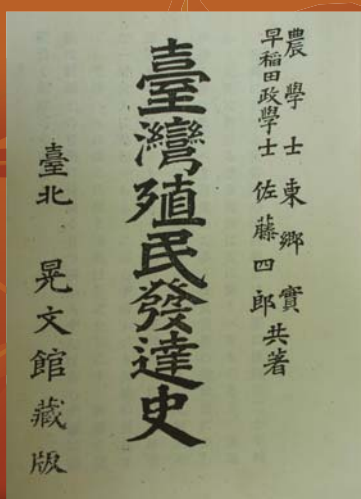 農學士 東鄉實
早稻田政學士 佐藤四郎 共著
臺灣殖民發達史
臺北 晃文館藏版